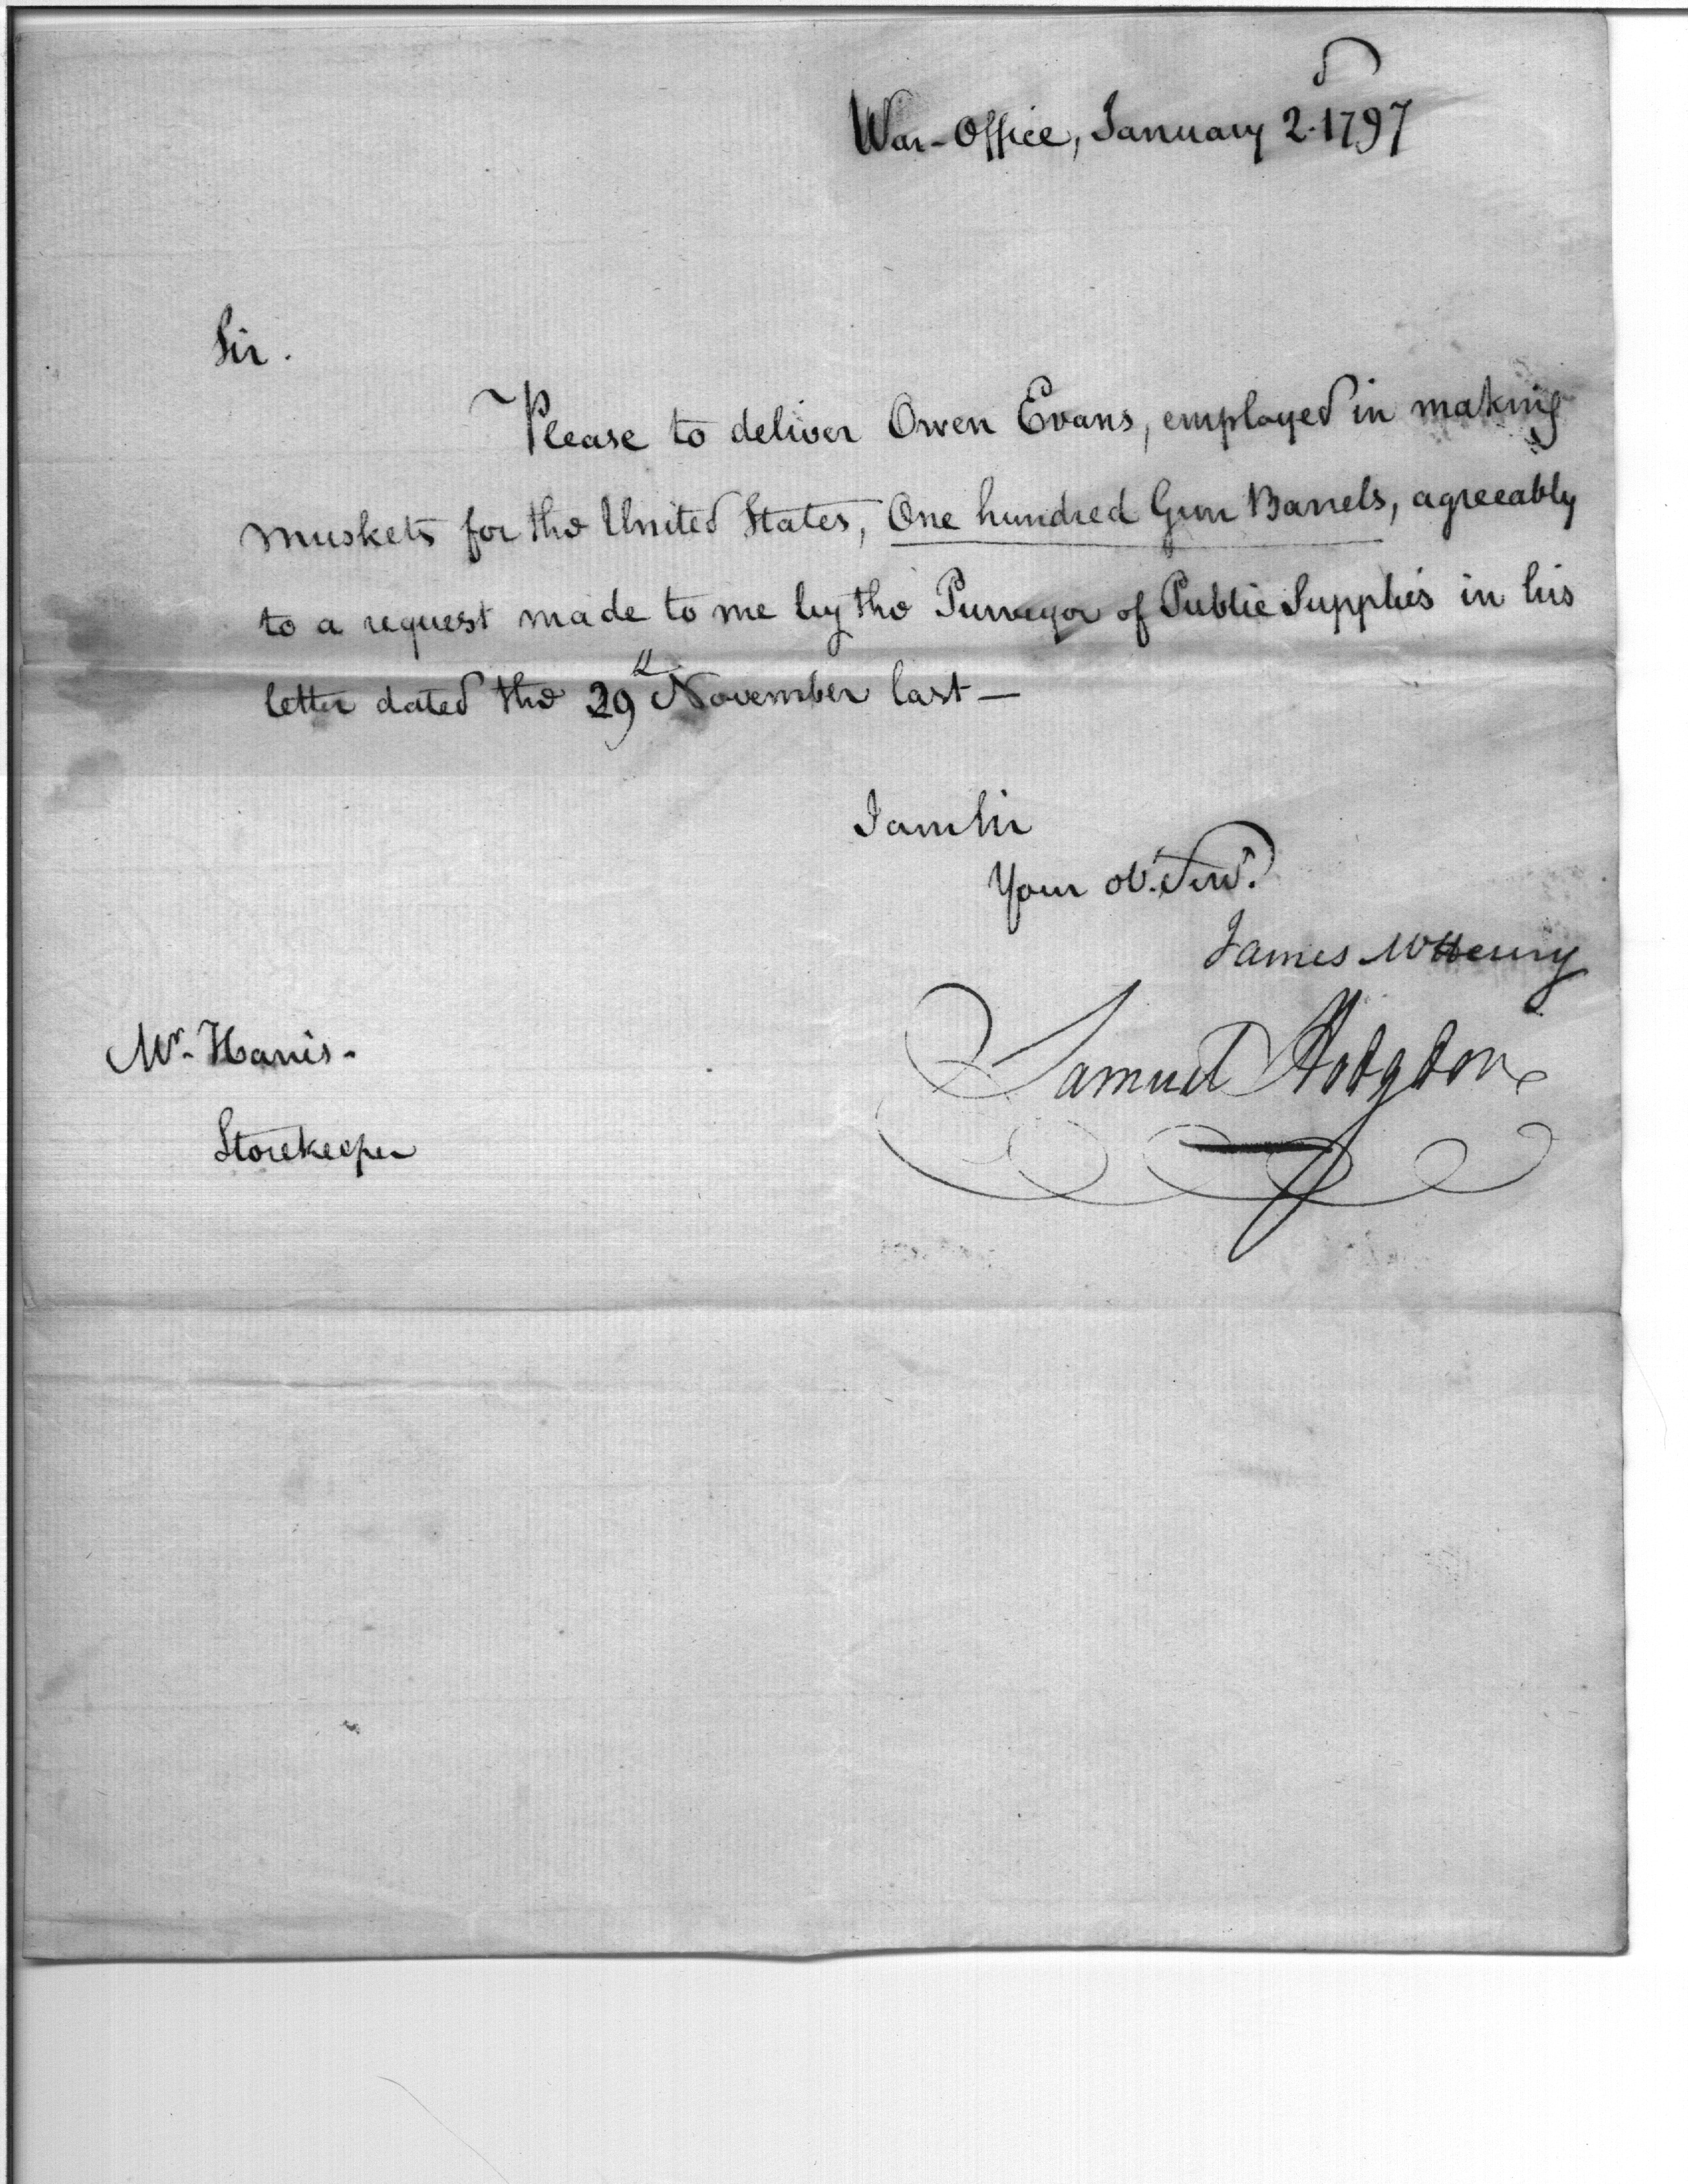 War-Office, January 2d. 1797
Sir.
Please to deliver Owen Evans, employed in making
muskets for the United States, One hundred Gun Barrels, agreeably
to a request made to me by the Purveyor of Public Supplies in his
letter dated the 29th November last—
I am Sir
Your ob. Servt.
James McHenry
Samuel Hodgdon
Mr. Harris.
Storekeeper